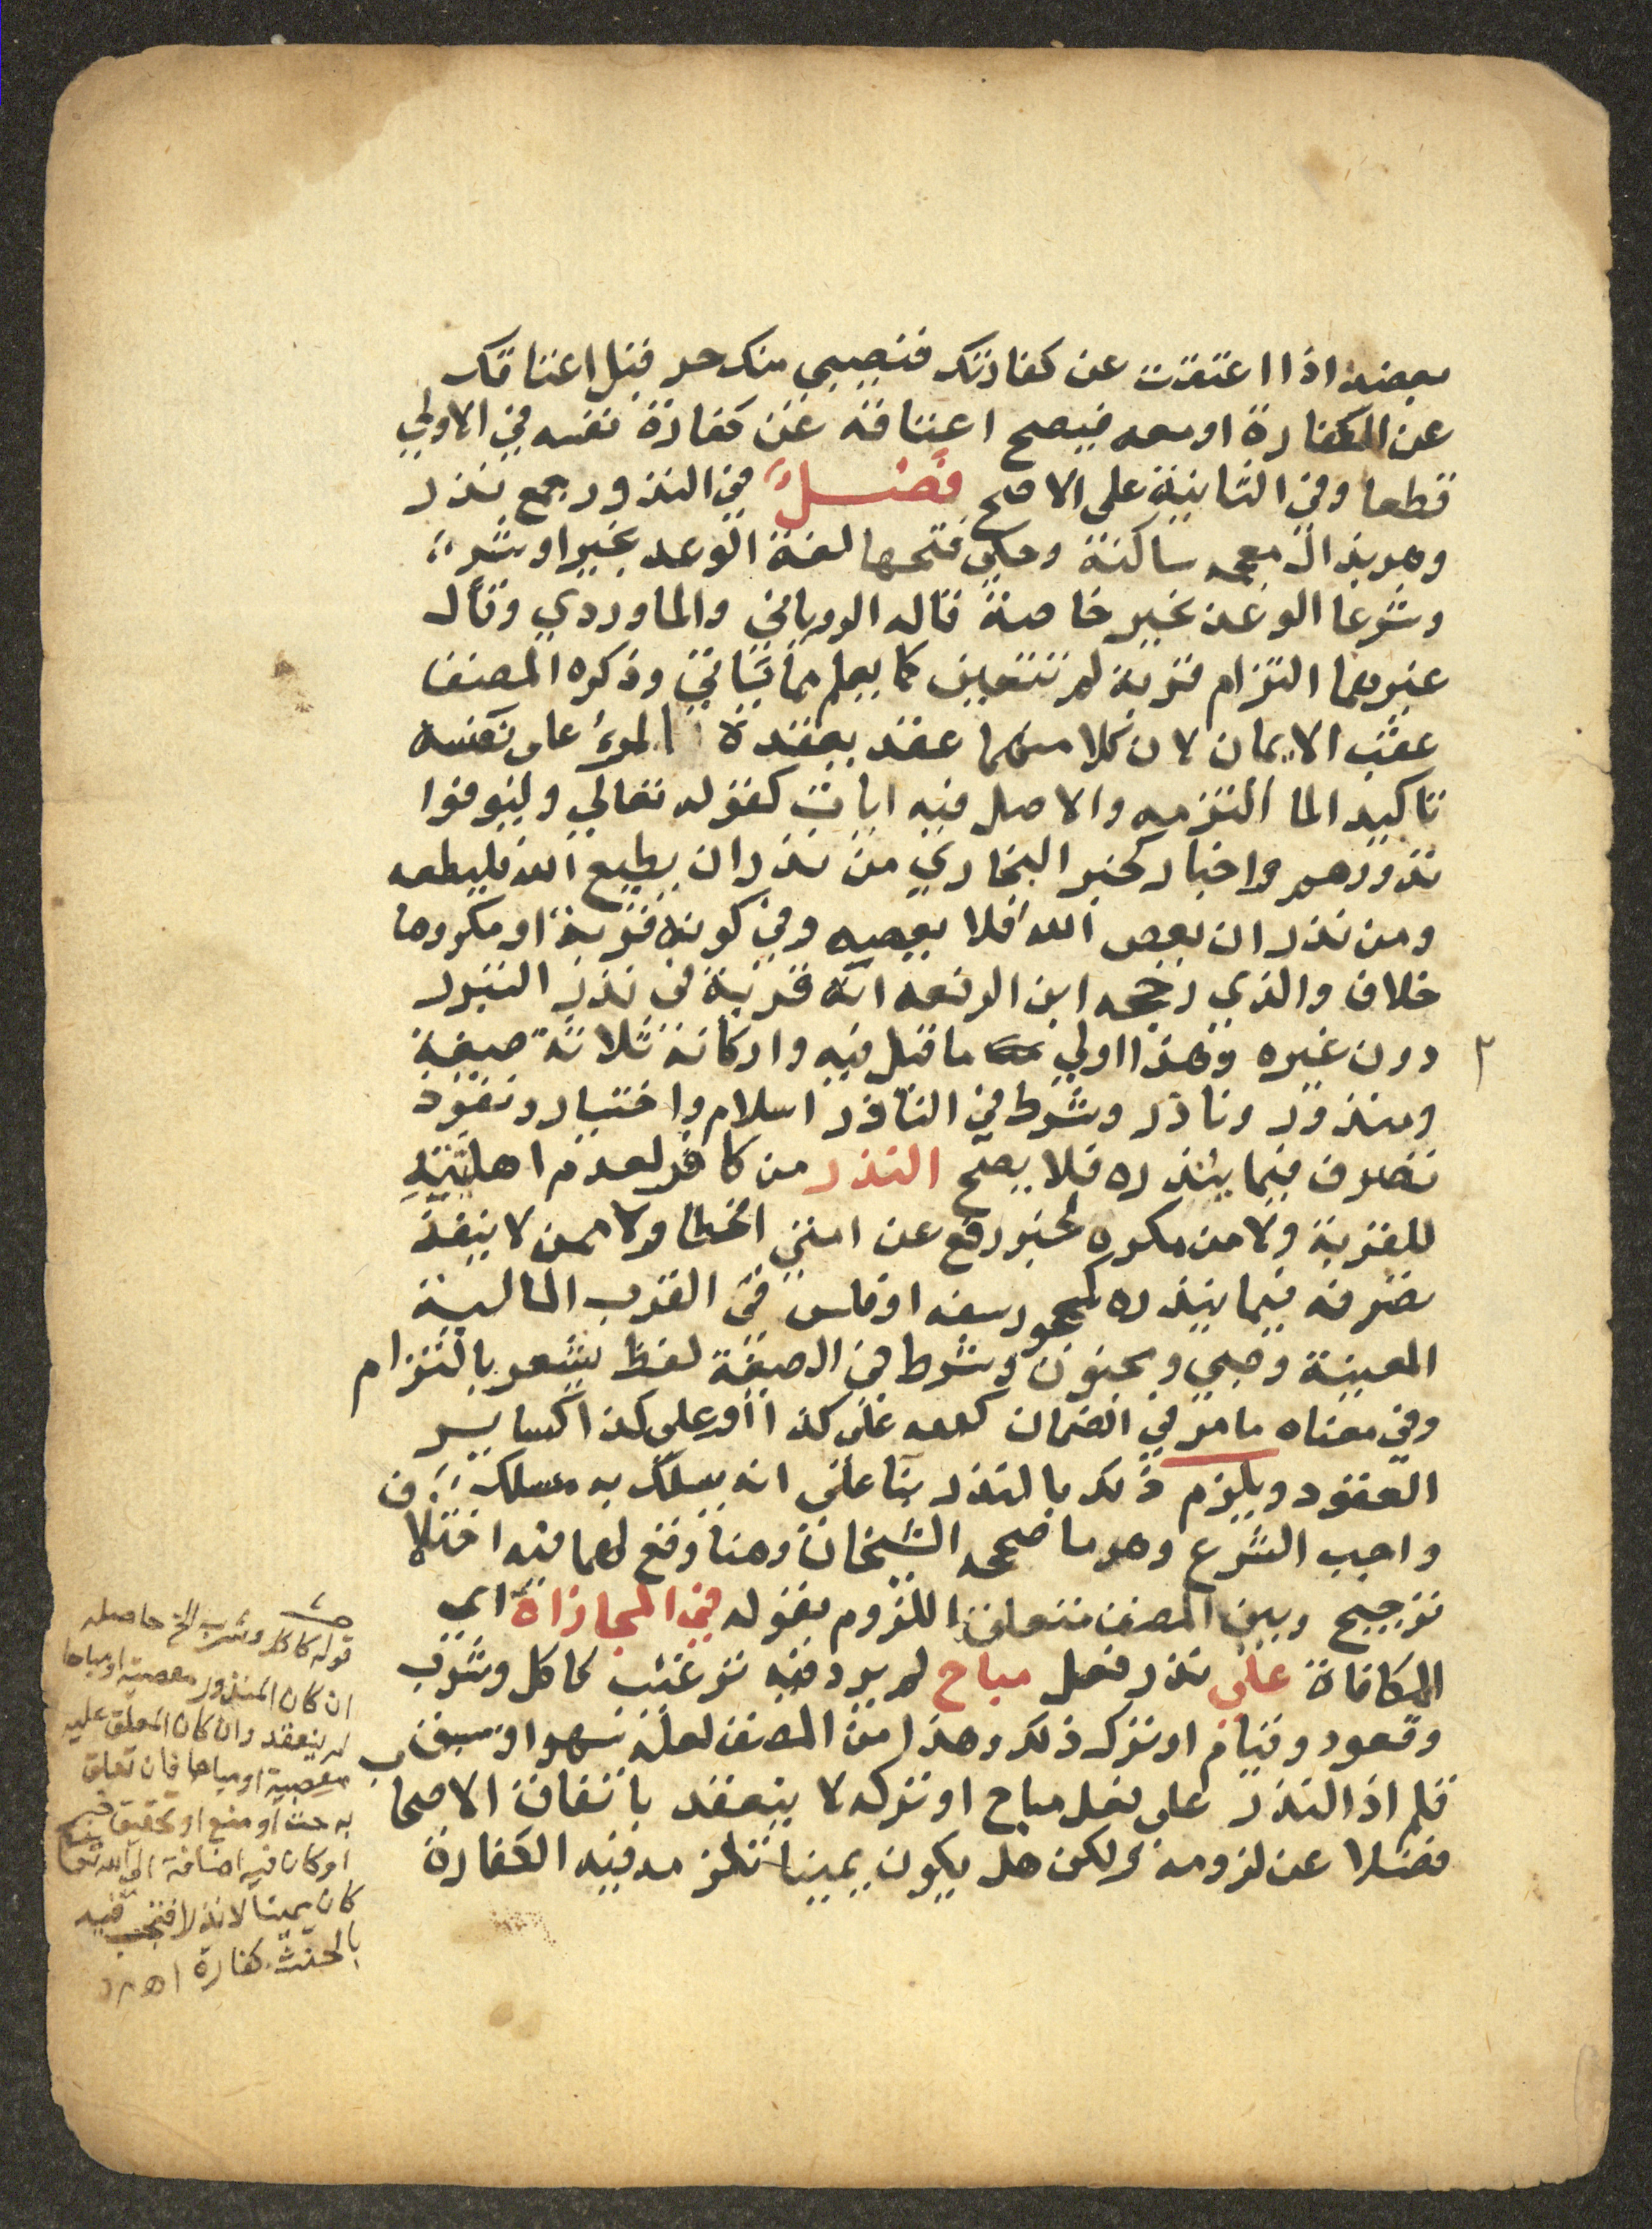 بعضه اذا اعتقت عن كفارتك فنصيبي منك حر قبل اعتاقك
عن الكفارة او معه فيصح اعتاقه عن كفارة نفسه في الاولي
قطعا وفي الثانية على الاصح فصل في النذور جمع نذر
وهو بذال معجمه ساكنة وحكي فتحها لغة الوعد بخير او شر
وشرعا الوعد بخير خاصة قاله الروياني والماوردي وقال
غيرهما التزام قربة لم تتعين كما يعلم مما ياتي وذكره المصنف
عقب الايمان لان كلا منهما عقد يعقده المرء على نفسه
تاكيدا لما التزمه والاصل فيه ايات كقوله تعالي وليوفوا
نذورهم واخبار كخبر البخاري من نذر ان يطيع الله فليطعه
ومن نذر ان يعص الله فلا يعصيه وفي كونه قربة او مكروها
خلاف والذي رجحه ابن الرفعه انه قربة في نذر التبرر
دون غيره وهذا اولي ما قيل فيه واركانه ثلاثة صيغة
ومنذور وناذر وشرط في الناذر اسلام واختيار ونفوذ
تصرف فيما ينذره فلا يصح النذر من كافر لعدم اهليته
للقربة ولا من مكره لخبر رفع عن امتي الخطا ولا ممن لا ينفذ
تصرفه فيما ينذره كمحجور سفه او فلس في القرب المالية
المعينة وصبي ومجنون وشرط في الصيغة لفظ يشعر بالتزام
وفي معناه ما مر في الضمان كلله علي كذا او علي كذا كساير
العقود ويلزم ذلك بالنذر بنا على انه يسلك به مسلك
واجب الشرع وهو ما صححه الشيخان وهنا وقع لهما فيه اختلاف
ترجيح وبين المصنف متعلق اللزوم بقوله في المجازاة اي
المكافاة على نذر فعل مباح لم يرد فيه ترغيب كاكل وشرب
وقعود وقيام او ترك ذلك وهذا من المصنف لعله سهو او سبق
قلم اذ النذر على فعل مباح او تركه لا ينعقد باتفاق الاصحاب
فضلا عن لزومه ولكن هل يكون يمينا تلزمه فيه الكفارة
قوله كاكل وشرب الخ حاصله
ان كان المنذور معصية او مباحا
لم ينعقد وان كان المعلق عليه
معصية او مباحا فان تعلق
به حث او منع او تحقيق خبر
او كان فيه اضافة الي الله تعالى
كان يمينا لا نذرا فتجب فيه
بالحنث كفارة اهـ